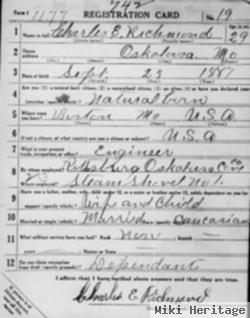 742
Form 1 1177 REGISTRATION CARD No. 19
1 Name in full Charles E. Richmond Age, in yrs. 29
2 Home address Oskaloosa Mo
3 Date of birth Sept. 23 1887
4 Are you (1) a natural-born citizen, (2) a naturalized citizen, (3) an alien, (4) or have you declared your intention (specify which)? Natural born
5 Where were you born? Mo U.S.A
6 If not a citizen, of what country are you a citizen or subject? U.S.A
7 What is your present trade, occupation, or office? Engineer
8 By whom employed? Pittsburg Oskaloosa
Where employed? Steam Shovel No 1.
9 Have you a father, mother, wife, child under 12, or a sister or brother under 12, solely dependent on you for support (specify which)? Wife and Child
10 Married or single (which)? Married Race (specify which)? Caucasian
11 What military service have you had? Rank None ; branch
years ; Nation or State
12 Do you claim exemption from draft (specify grounds)? Dependants
I affirm that I have verified above answers and that they are true.
Charles E Richmond
Wiki Heritage